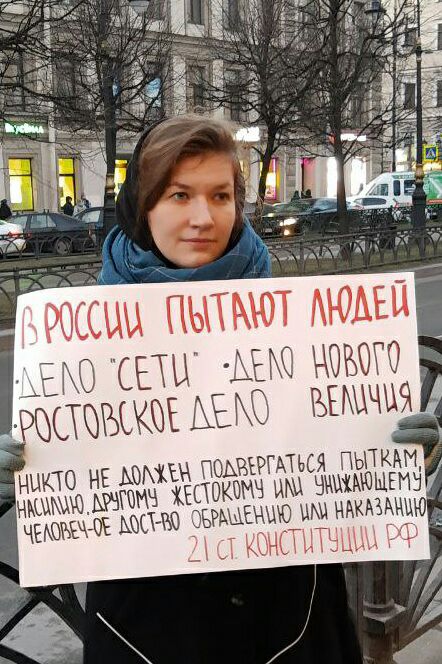 В РОССИИ ПЫТАЮТ ЛЮДЕЙ
·ДЕЛО "СЕТИ" ·ДЕЛО НОВОГО
·РОСТОВСКОЕ ДЕЛО ВЕЛИЧИЯ
НИКТО НЕ ДОЛЖЕН ПОДВЕРГАТЬСЯ ПЫТКАМ,
НАСИЛИЮ, ДРУГОМУ ЖЕСТОКОМУ ИЛИ УНИЖАЮЩЕМУ
ЧЕЛОВЕЧ-ОЕ ДОСТ-ВО ОБРАЩЕНИЮ ИЛИ НАКАЗАНИЮ
21 СТ. КОНСТИТУЦИИ РФ